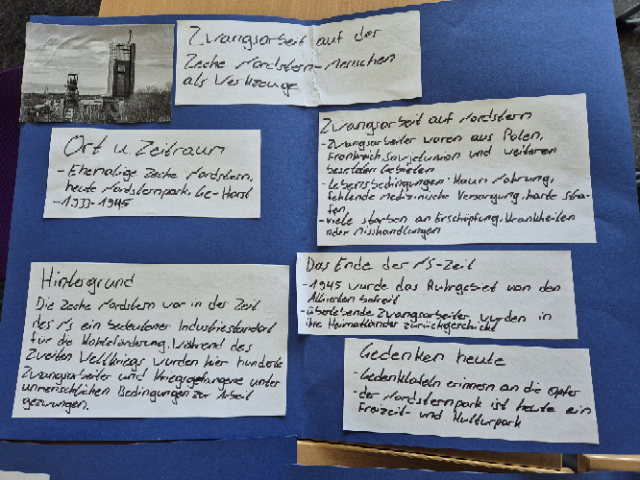 Zwangsarbeit auf der
Zeche Nordstern - Menschen
als Werkzeuge
Ort u. Zeitraum
- Ehemalige Zeche Nordstern,
heute Nordsternpark, Ge-Horst
- 1933-1945
Zwangsarbeit auf Nordstern
- Zwangsarbeiter waren aus Polen,
Frankreich Sowjetunion und weiteren
besetzten Gebieten
- Lebensbedingungen: Kaum Nahrung,
fehlende medizinische Versorgung, harte Stra-
fen
- viele starben an Erschöpfung, Krankheiten
oder Misshandlungen
Hintergrund
Die Zeche Nordstern war in der Zeit
des NS ein bedeutener Industriestandort
für die Kohleförderung. Während des
Zweiten Weltkriegs wurden hier hunderte
Zwangsarbeiter und Kriegsgefangene unter
unmenschlichen Bedingungen zur Arbeit
gezwungen.
Das Ende der NS-Zeit
- 1945 wurde das Ruhrgebiet von den
Alliierten befreit
- überlebende Zwangsarbeiter wurden in
ihre Heimatländer zurückgeschickt
Gedenken heute
- Gedenktafeln erinnern an die Opfer
- der Nordsternpark ist heute ein
Freizeit- und Kulturpark